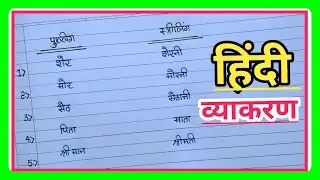 पुल्लिंग स्त्रीलिंग
1) शेर शेरनी
2) मोर मोरनी
3) सेठ सेठानी
4) पिता माता
5) श्रीमान श्रीमती
हिंदी
व्याकरण